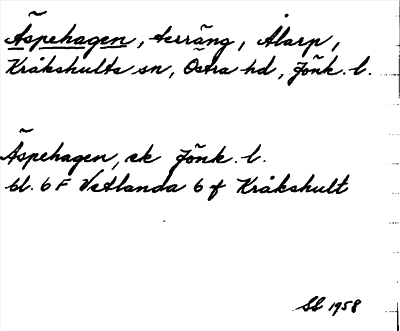 Äspehagen, terräng, Ålarp,
Kråkshults sn, Östra hd, Jönk. l.
Äspehagen, ek Jönk. l.
bl. 6 F Vetlanda 6 f Kråkshult
SL 1958